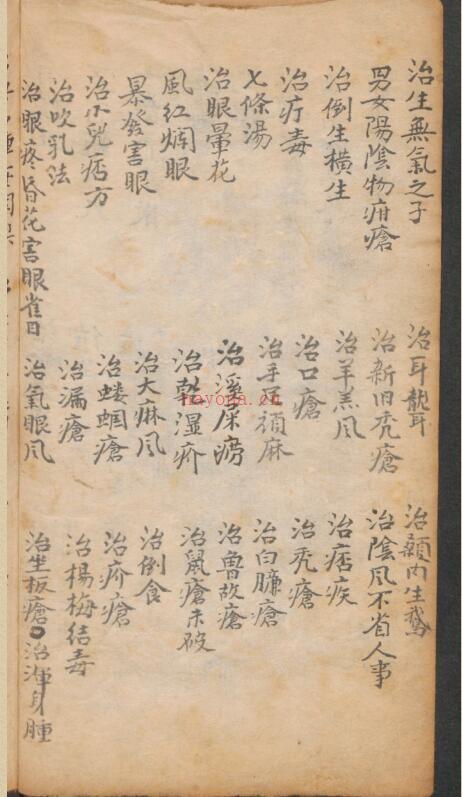 治生無氣之子
男女陽陰物疳瘡
治倒生橫生
治疔毒
七條湯
治眼暈花
風紅爛眼
暴發害眼
治小兒痞方
治吹乳法
治眼疼昏花害眼雀目
治耳聾耳
治新旧禿瘡
治羊羔风
治口瘡
治手足頑麻
治溪屎痨
治乾湿疥
治大麻风
治蝼蝈瘡
治漏瘡
治氣眼风
治顙内生鵝
治陰风不省人事
治痞疾
治禿瘡
治白臁瘡
治魯故瘡
治鼠瘡未破
治倒食
治疥瘡
治楊梅结毒
治坐板瘡〇治渾身腫
hayona.cn